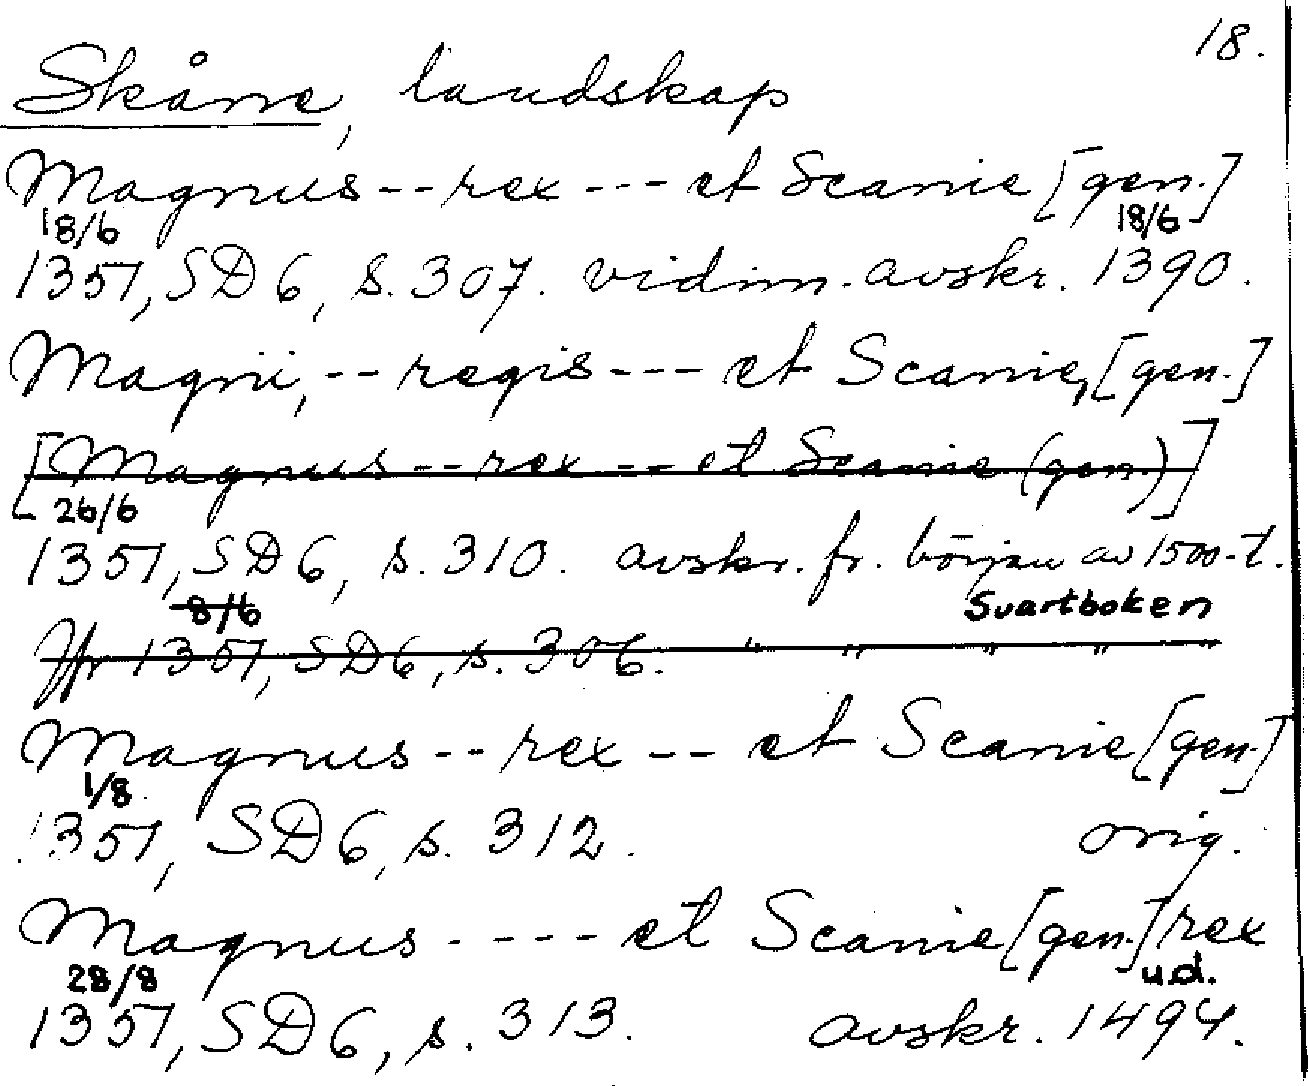 18.
Skåne, landskap
Magnus -- rex --- et Scanie [gen.]
18/6 18/6
1351, SD 6, s. 307. vidim. avskr. 1390.
Magni, -- regis --- et Scanie, [gen.]
[Magnus -- rex -- et Scanie (gen.)]
26/6
1351, SD 6, s. 310. avskr. fr. början av 1500-t.
8/6 Svartboken
Jfr 1351, SD 6, s. 306. " " " " "
Magnus -- rex -- et Scanie [gen.]
1/8
1351, SD 6, s. 312. orig.
Magnus ---- et Scanie [gen.] rex
28/8 u.d.
1351, SD 6, s. 313. avskr. 1494.